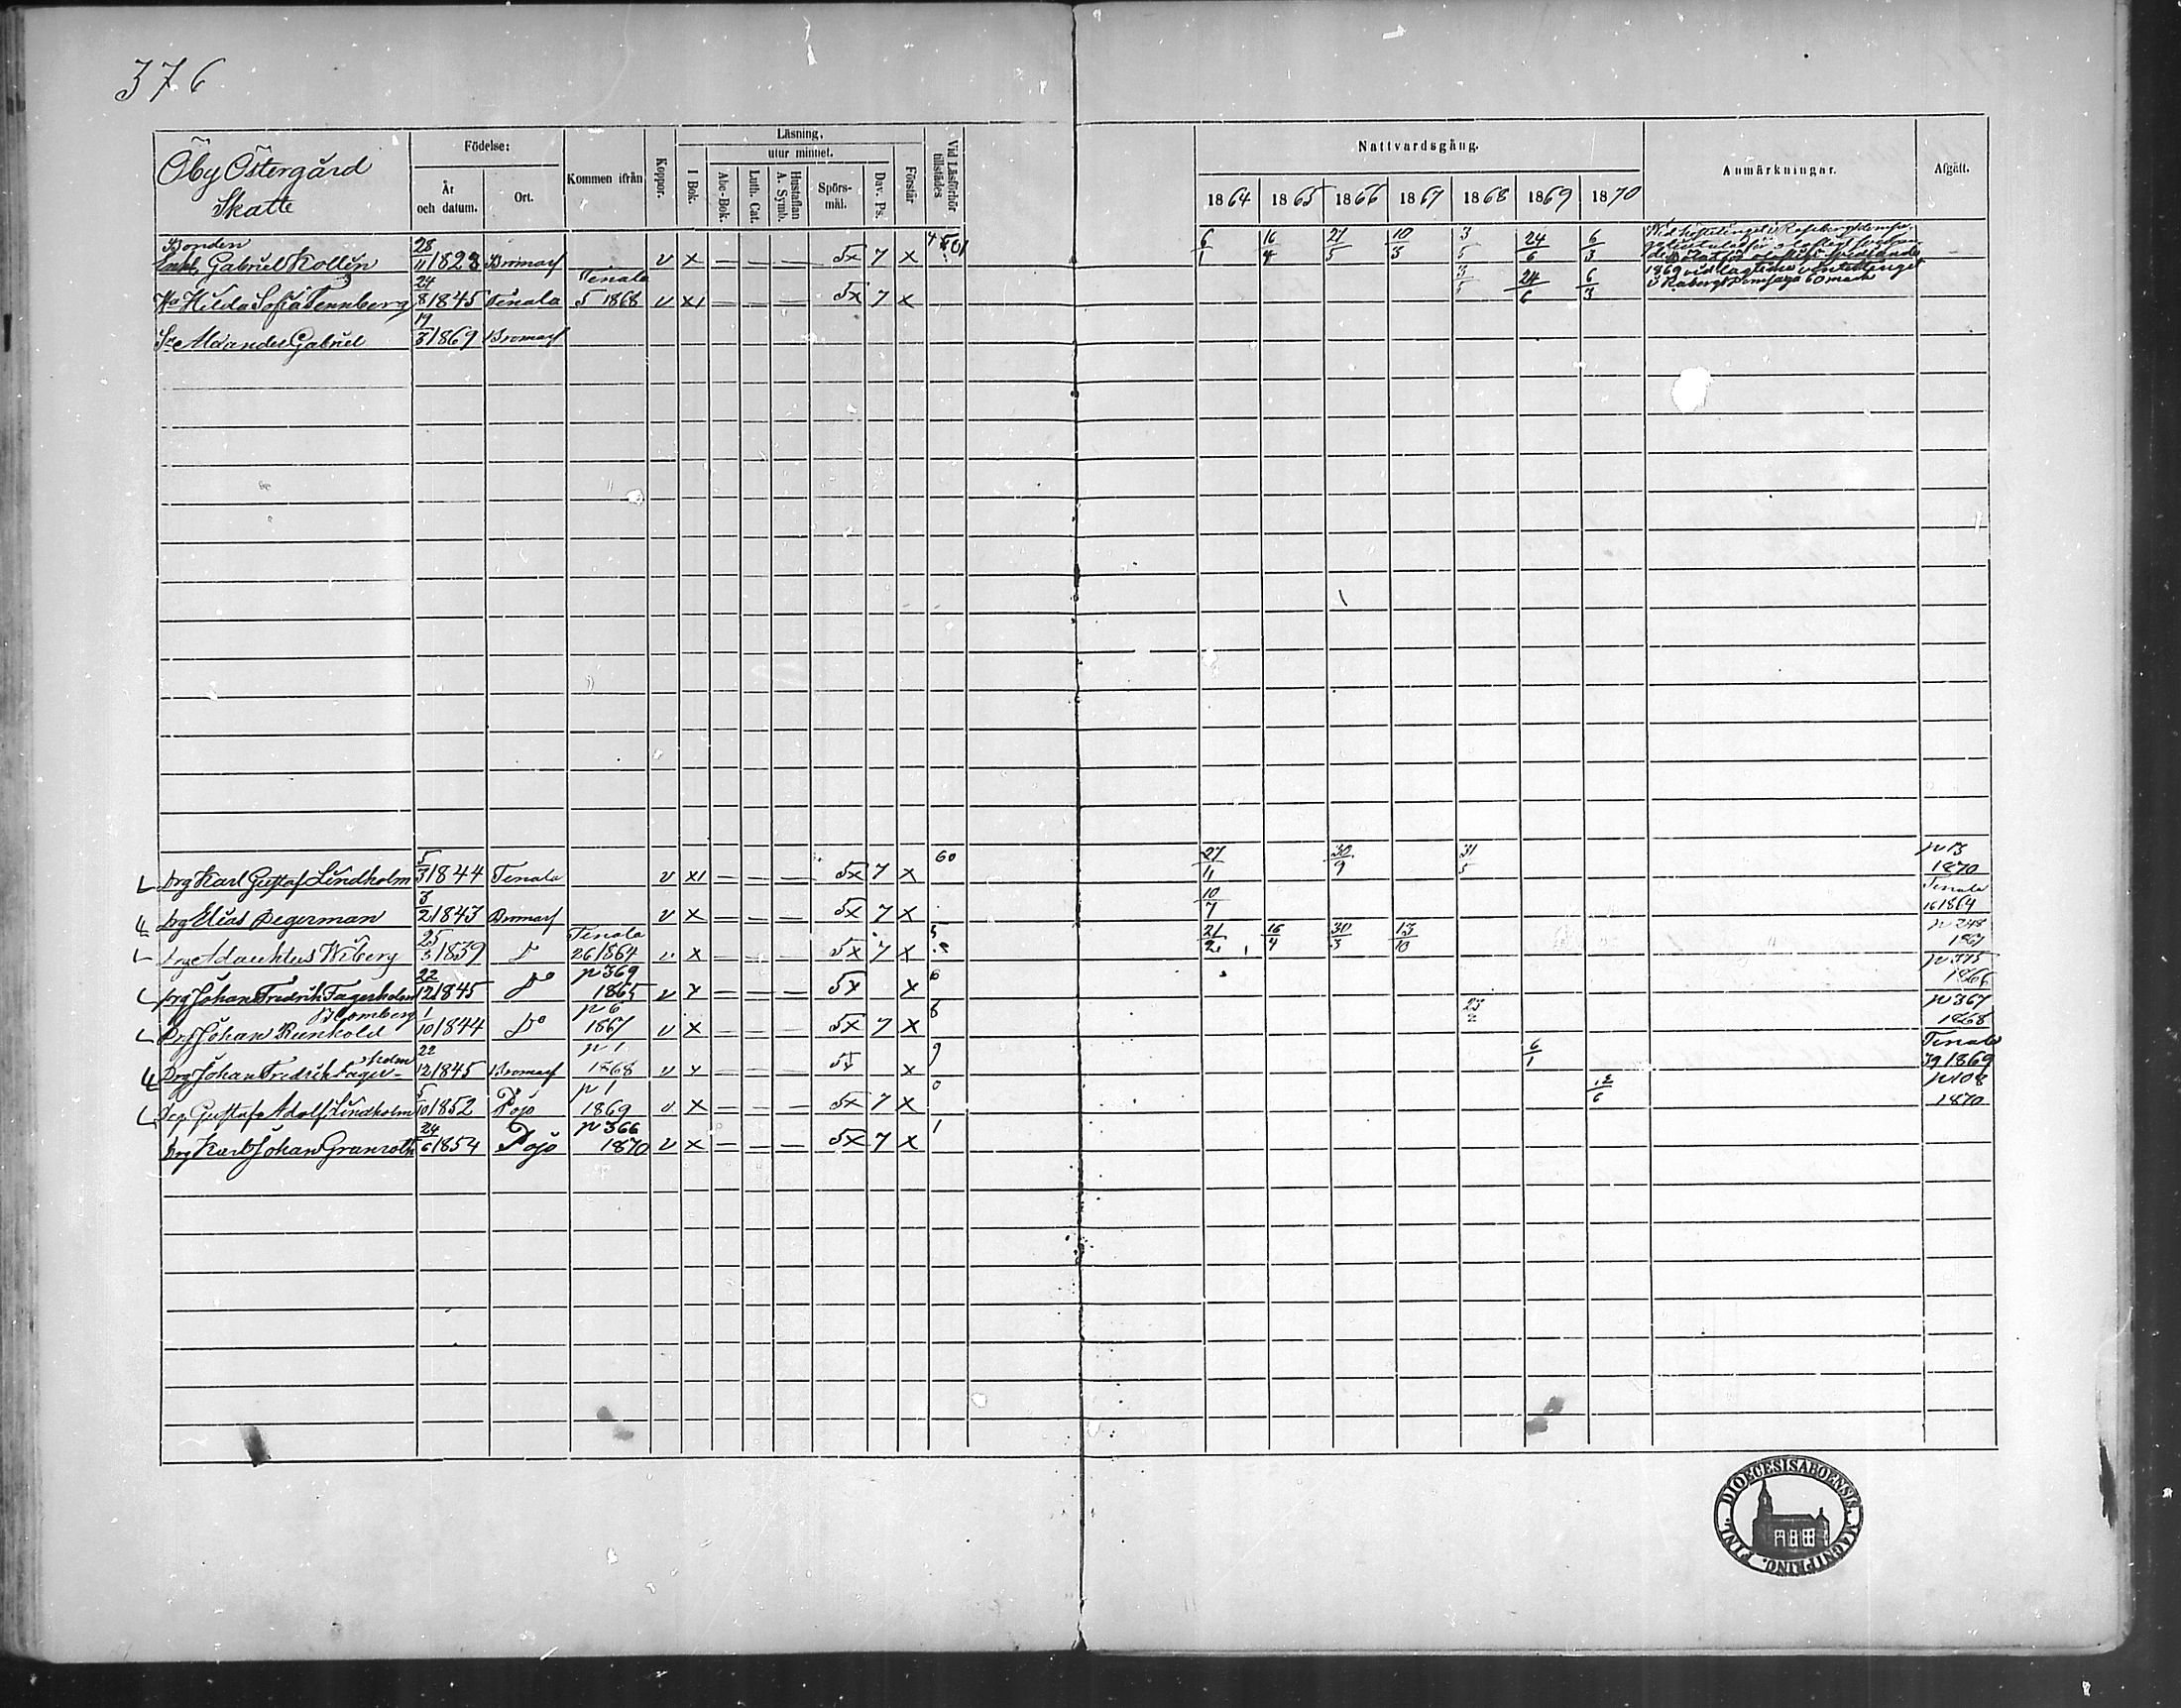 376
Öby Östergård
Skatte
Födelse:
År och datum.
Ort.
Kommen ifrån
Koppor.
Läsning.
I Bok.
utur minnet.
Abc-Bok.
Luth. Cat.
Hustaflan A. Symb.
Spörsmål.
Dav. Ps.
Förstår
Vid Läsförhör tillstädes
Nattvardsgång.
1864 1865 1866 1867 1868 1869 1870
Anmärkningar.
Afgått.
Bonden
Gabriel Kollin 28/11 1823 Bromarf v x — — — 5x 7 x 6/1 16/4 21/5 10/3 3/5 24/6 6/3
Hu Hilda Sofia Tennberg 24/8 1845 Tenala Tenala 5 1868 v x1 — — — 5x 7 x 3/5 24/6 6/3
1869 vid lagtima vintertinget
Gabriel 19/3 1869 Bromarf
Drg Karl Gustaf Lindholm 5/3 1844 Tenala v x1 — — — 5x 7 x 60 27/11 30/9 31/5 p 13 1870
Drg Elias Degerman 3/2 1843 Bromarf v x — — — 5x 7 x 10/7 Tenala 16 1864
Wiberg 25/3 1839 Tenala 26 1864 v x — — — 5x 7 x 21/2 16/4 30/3 13/10 p 248
Drg Johan Fredrik Fagerholm 22/12 1845 Do p 369 1865 v x — — — 5x x 6 p 375 1866
Blomberg
Drg Johan Renhold 1/10 1844 Do p 6 1867 v x — — — 5x 7 x 8 23/2 p 367 1868
holm
Drg Johan Fredrik Fager- 22/12 1845 Bromarf p 1 1868 v x — — — 5x x 9 6/1 Tenala 1869
Drg Gustaf Adolf Lindholm 5/10 1852 Pojo p 1 1869 v x — — — 5x 7 x 0 12/6 p 108 1870
Drg Karl Johan Granroth 24/6 1854 Pojo p 366 1870 v x — — — 5x 7 x 1
DIOECESIS ABOENSIS. MAGNI PRINC. FINL.